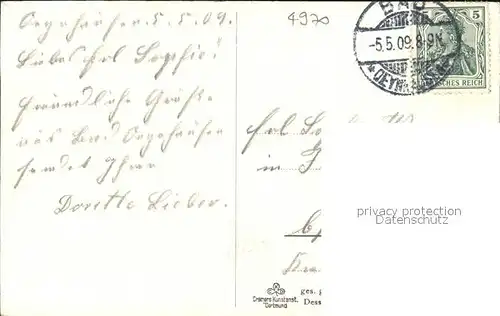 Oeynhausen 5.5.09.
Liebes Frl Sophie!
Freundliche Grüße
aus Bad Oeynhausen
sendet Ihnen
Dorette Lieber.
4970
BAD
-5.5.09.8-9N.
OEYNHAUSEN
5
DEUTSCHES REICH
Frl
in
privacy protection
Datenschutz
Crämers Kunstanst.
Dortmund
ges. g
Dess